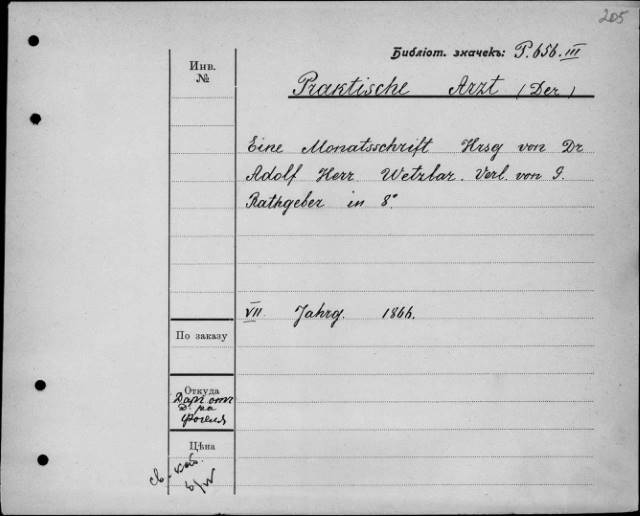 205
Библіот. значекъ: P. 656. III
Инв.
№
Praktische Arzt (Der)
Eine Monatsschrift Hrsg von Dr
Adolf Herr Wetzlar. Verl. von G.
Rathgeber in 8°
VII Jahrg. 1866.
По заказу
Откуда
Даръ отъ
Д-ра
Фогеля
Цѣна